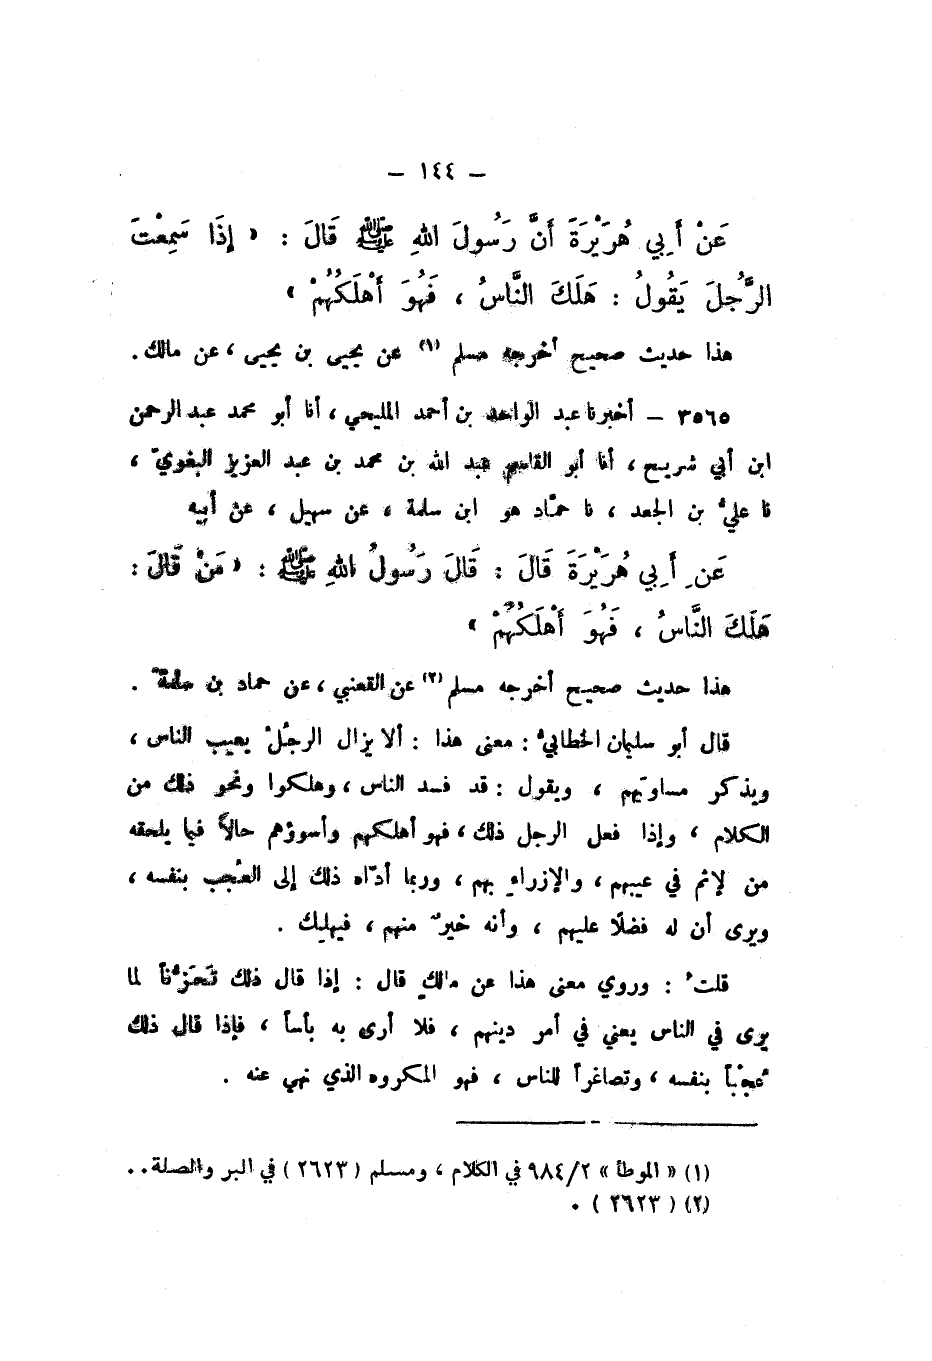 – ١٤٤ –
عَنْ أَبِي هُرَيْرَةَ أَنَّ رَسُولَ اللهِ ﷺ قَالَ : « إِذَا سَمِعْتَ
الرَّجُلَ يَقُولُ : هَلَكَ النَّاسُ ، فَهُوَ أَهْلَكُهُمْ »
هذا حديث صحيح أخرجه مسلم (١) عن يحيى بن يحيى ، عن مالك .
٣٥٦٥ – أخبرنا عبد الواحد بن أحمد المليحي ، أنا أبو محمد عبد الرحمن
ابن أبي شريح ، أنا أبو القاسم عبد الله بن محمد بن عبد العزيز البغويّ ،
نا عليُّ بن الجعد ، نا حمّاد هو ابن سلمة ، عن سهيل ، عن أبيه
عَنِ أَبِي هُرَيْرَةَ قَالَ : قَالَ رَسُولُ اللهِ ﷺ : « مَنْ قَالَ :
هَلَكَ النَّاسُ ، فَهُوَ أَهْلَكُهُمْ »
هذا حديث صحيح أخرجه مسلم (٢) عن القعنبي ، عن حماد بن سلمة .
قال أبو سليمان الخطابيُّ : معنى هذا : ألا يزال الرجُلُ يعيب الناس ،
ويذكر مساويَهم ، ويقول : قد فسد الناس ، وهلكوا ونحو ذلك من
الكلام ، وإذا فعل الرجل ذلك ، فهو أهلكهم وأسوؤهم حالاً فيما يلحقه
من لإثم في عيبهم ، والإزراء بهم ، وربما أدّاه ذلك إلى العُجب بنفسه ،
ويرى أن له فضلًا عليهم ، وأنه خيرٌ منهم ، فيهلك .
قلتُ : وروي معنى هذا عن مالك قال : إذا قال ذلك تَحَزُّناً لما
يرى في الناس يعني في أمر دينهم ، فلا أرى به بأساً ، فإذا قال ذلك
عُجْباً بنفسه ، وتصاغراً للناس ، فهو المكروه الذي نهي عنه .
(١) « الموطأ » ٩٨٤/٢ في الكلام ، ومسلم ( ٢٦٢٣ ) في البر والصلة . .
(٢) ( ٢٦٢٣ ) .